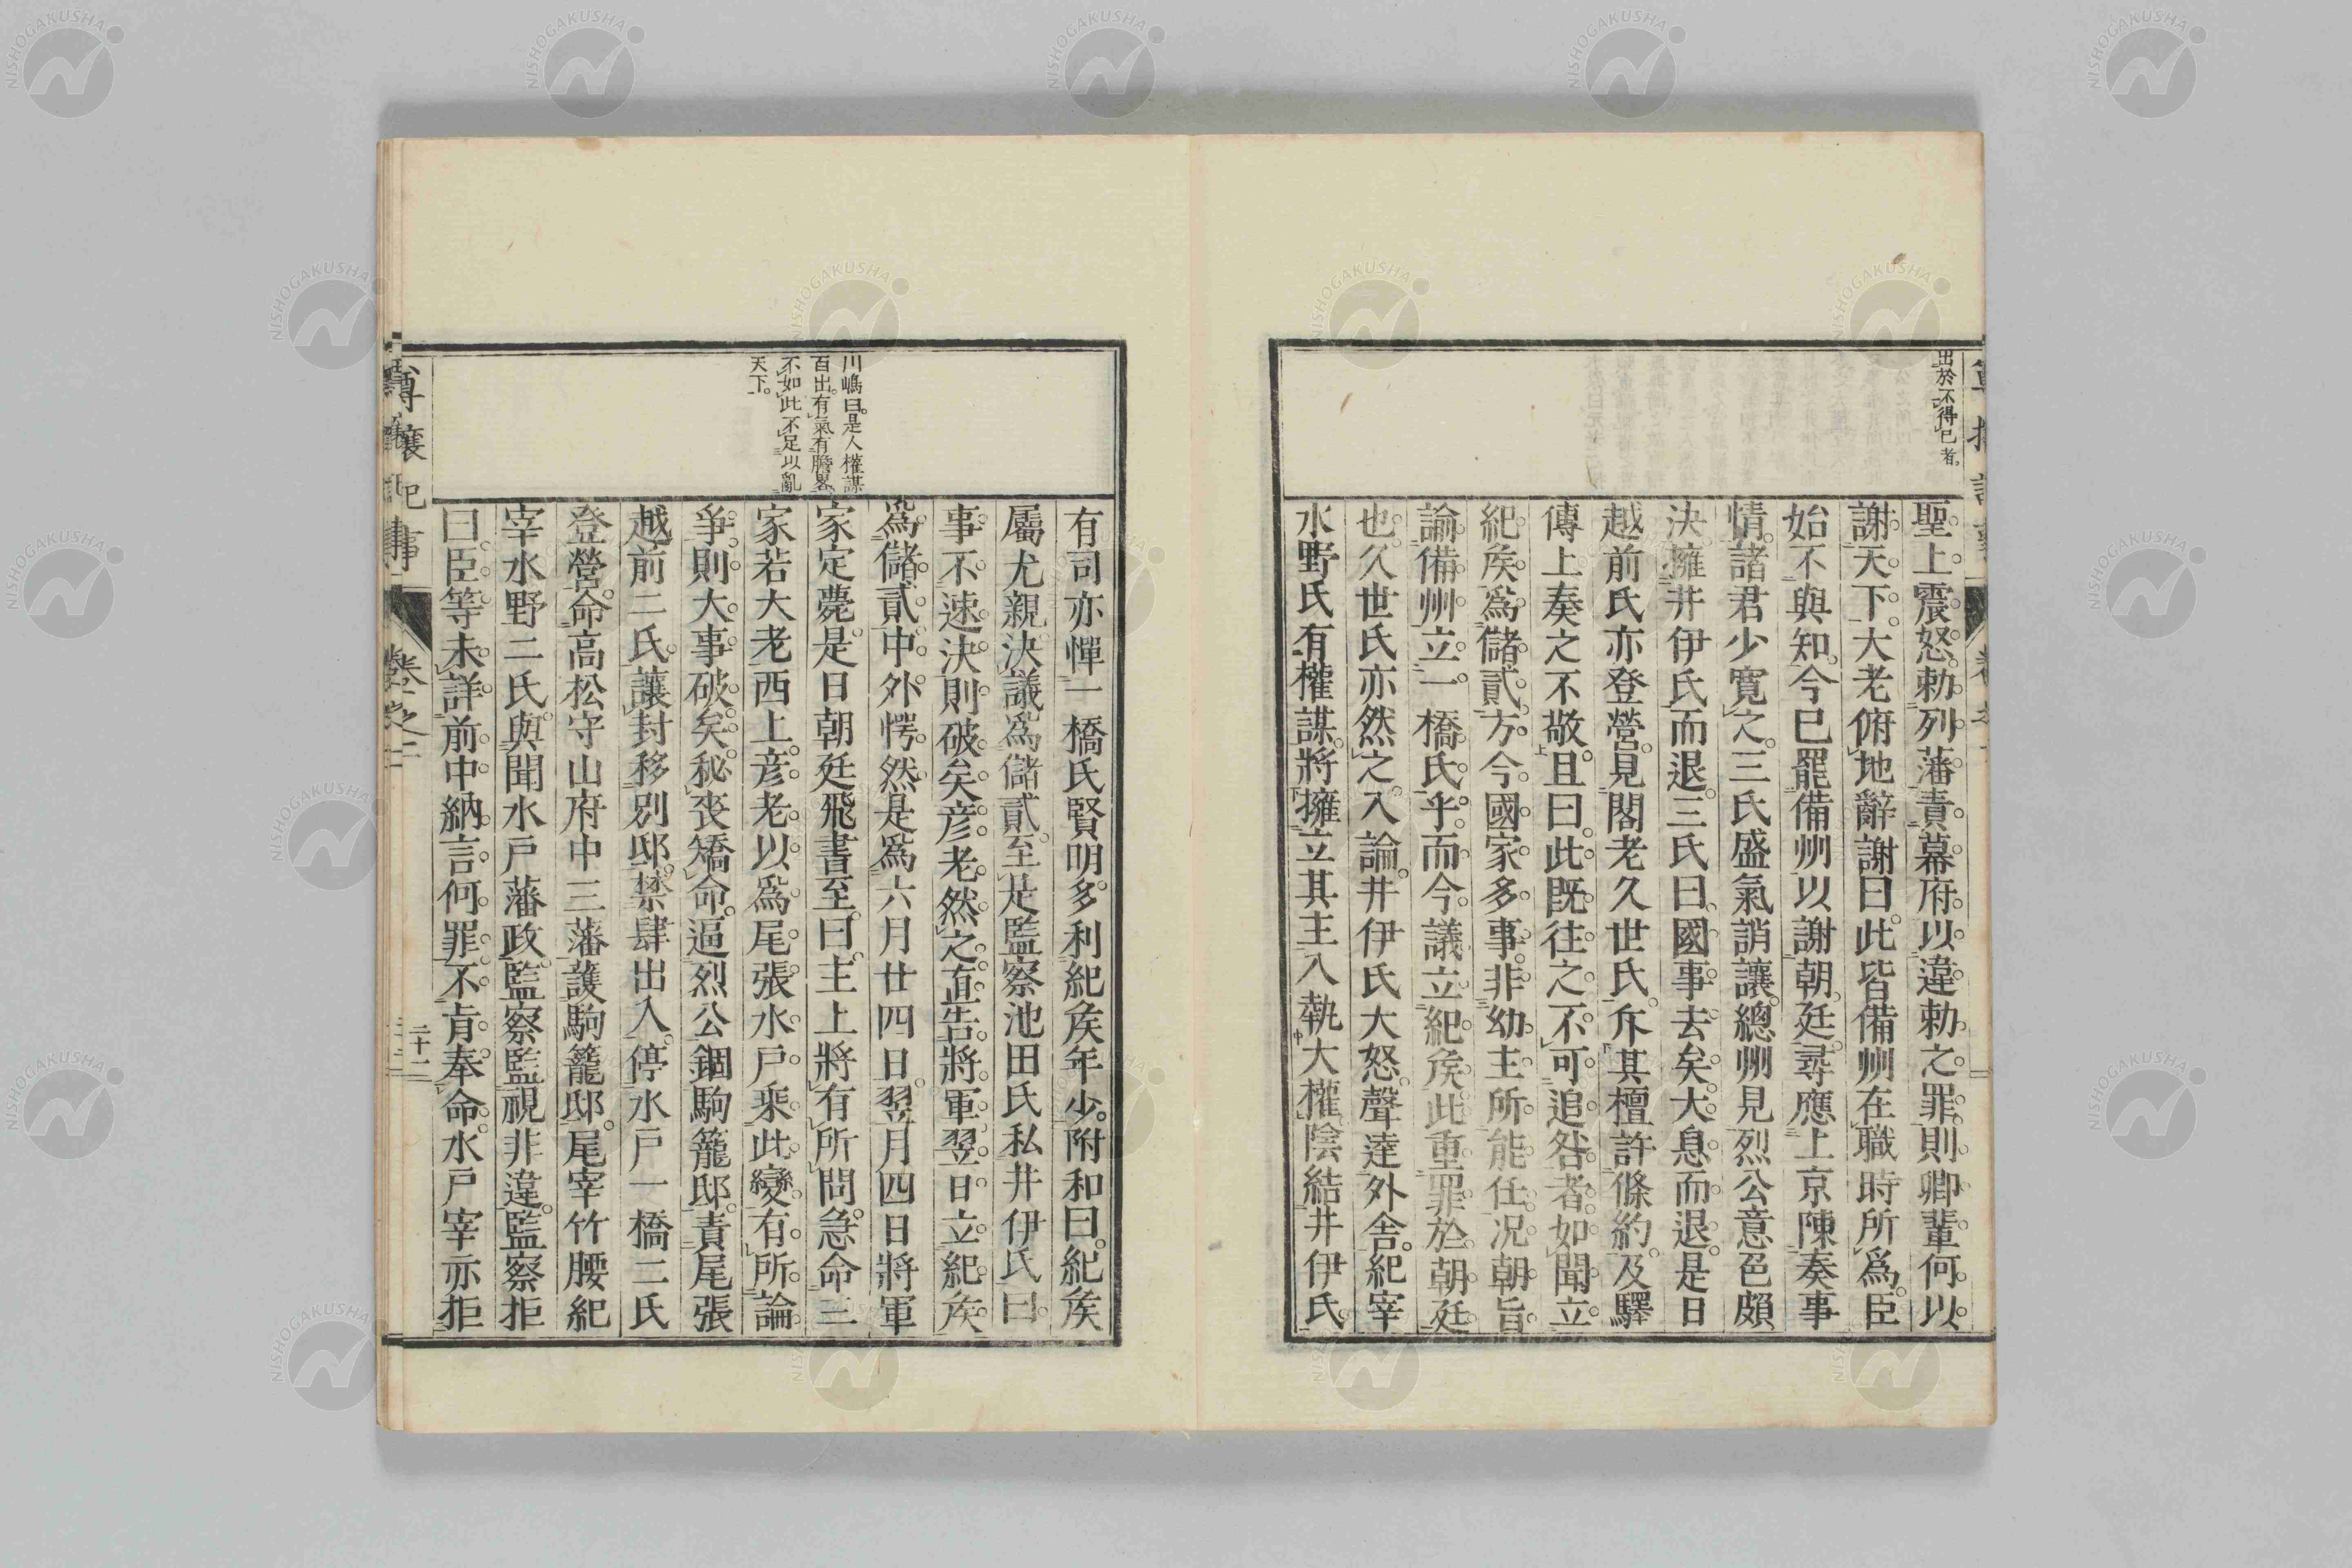 出於不得已者。
聖上震怒。勅列藩責幕府。以違勅之罪。則卿輩何以
謝天下。大老俯地辭謝曰。此皆備州在職時所爲。臣
始不與知。今已罷備州以謝朝廷。尋應上京陳奏事
情。諸君少寛之。三氏盛氣誚讓。總州見烈公意色頗
決。擁井伊氏而退。三氏曰。國事去矣。大息而退。是日
越前氏亦登營。見閣老久世氏。斥其檀許條約。及驛
傳上奏之不敬。且曰。此既往之不可追咎者。如聞立
紀矦爲儲貳。方今國家多事。非幼主所能任。况朝旨
諭備州立一橋氏乎。而今議立紀矦。此重罪於朝廷
也。久世氏亦然之。入論。井伊氏大怒。聲達外舎。紀宰
水野氏有權謀。將擁立其主入執大權。陰結井伊氏。
川嶋曰。是人權謀
百出。有氣有膽畧
不如此不足以亂
天下。
有司亦憚一橋氏賢明。多利紀矦年少。附和曰。紀矦
屬尤親。決議爲儲貳。至是監察池田氏私井伊氏曰。
事不速決則破矣。彦老然之。直告將軍。翌日立紀矦
爲儲貳。中外愕然。是爲六月廿四日。翌月四日將軍
家定薨。是日朝廷飛書至。曰。主上將有所問。急命三
家若大老西上。彦老以爲尾張水戸乘此變有所論
爭。則大事破矣。秘喪矯命。逼烈公錮駒籠邸。責尾張
越前二氏。讓封移別邸。禁肆出入。停水戸一橋二氏
登營。命高松守山府中三藩護駒籠邸。尾宰竹腰紀
宰水野二氏。與聞水戸藩政。監察監視非違。監察拒
曰。臣等未詳前中納言何罪。不肯奉命。水戸宰亦拒
尊攘紀事
卷之二
二十一